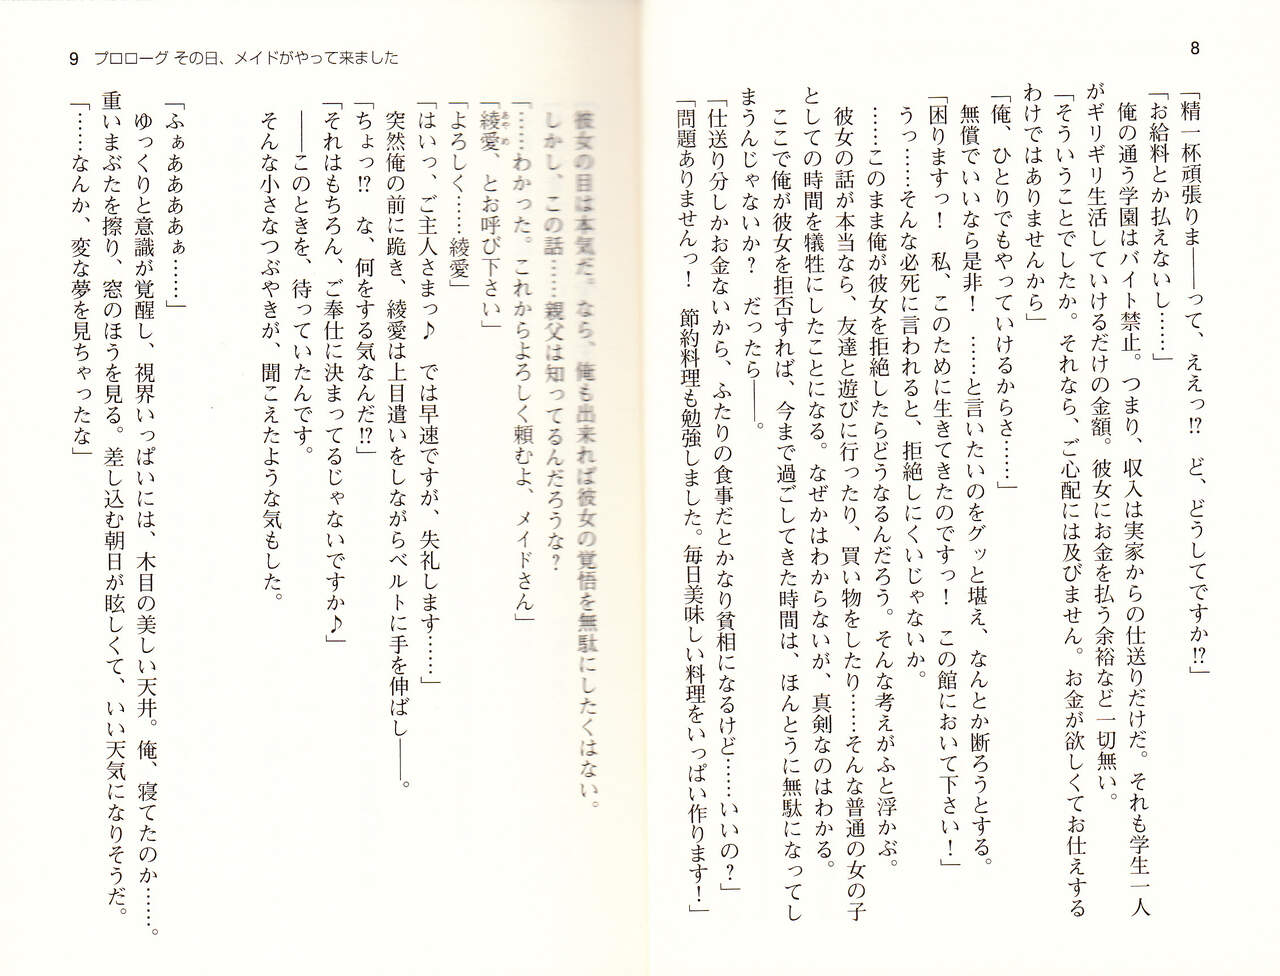 8
「精一杯頑張りま――って、ええっ!?　ど、どうしてですか!?」
「お給料とか払えないし……」
　俺の通う学園はバイト禁止。つまり、収入は実家からの仕送りだけだ。それも学生一人
がギリギリ生活していけるだけの金額。彼女にお金を払う余裕など一切無い。
「そういうことでしたか。それなら、ご心配には及びません。お金が欲しくてお仕えする
わけではありませんから」
「俺、ひとりでもやっていけるからさ……」
　無償でいいなら是非！　……と言いたいのをグッと堪え、なんとか断ろうとする。
「困りますっ！　私、このために生きてきたのですっ！　この館において下さい！」
　うっ……そんな必死に言われると、拒絶しにくいじゃないか。
　……このまま俺が彼女を拒絶したらどうなるんだろう。そんな考えがふと浮かぶ。
　彼女の話が本当なら、友達と遊びに行ったり、買い物をしたり……そんな普通の女の子
としての時間を犠牲にしたことになる。なぜかはわからないが、真剣なのはわかる。
　ここで俺が彼女を拒否すれば、今まで過ごしてきた時間は、ほんとうに無駄になってし
まうんじゃないか？　だったら――。
「仕送り分しかお金ないから、ふたりの食事だとかなり貧相になるけど……いいの？」
「問題ありませんっ！　節約料理も勉強しました。毎日美味しい料理をいっぱい作ります！」
9　プロローグ その日、メイドがやって来ました
　彼女の目は本気だ。なら、俺も出来れば彼女の覚悟を無駄にしたくはない。
　しかし、この話……親父は知ってるんだろうな？
「……わかった。これからよろしく頼むよ、メイドさん」
「綾愛、とお呼び下さい」
あやめ
「よろしく……綾愛」
「はいっ、ご主人さまっ♪　では早速ですが、失礼します……」
　突然俺の前に跪き、綾愛は上目遣いをしながらベルトに手を伸ばし――。
「ちょっ!?　な、何をする気なんだ!?」
「それはもちろん、ご奉仕に決まってるじゃないですか♪」
　――このときを、待っていたんです。
　そんな小さなつぶやきが、聞こえたような気もした。
「ふぁああああぁ……」
　ゆっくりと意識が覚醒し、視界いっぱいには、木目の美しい天井。俺、寝てたのか……。
重いまぶたを擦り、窓のほうを見る。差し込む朝日が眩しくて、いい天気になりそうだ。
「……なんか、変な夢を見ちゃったな」